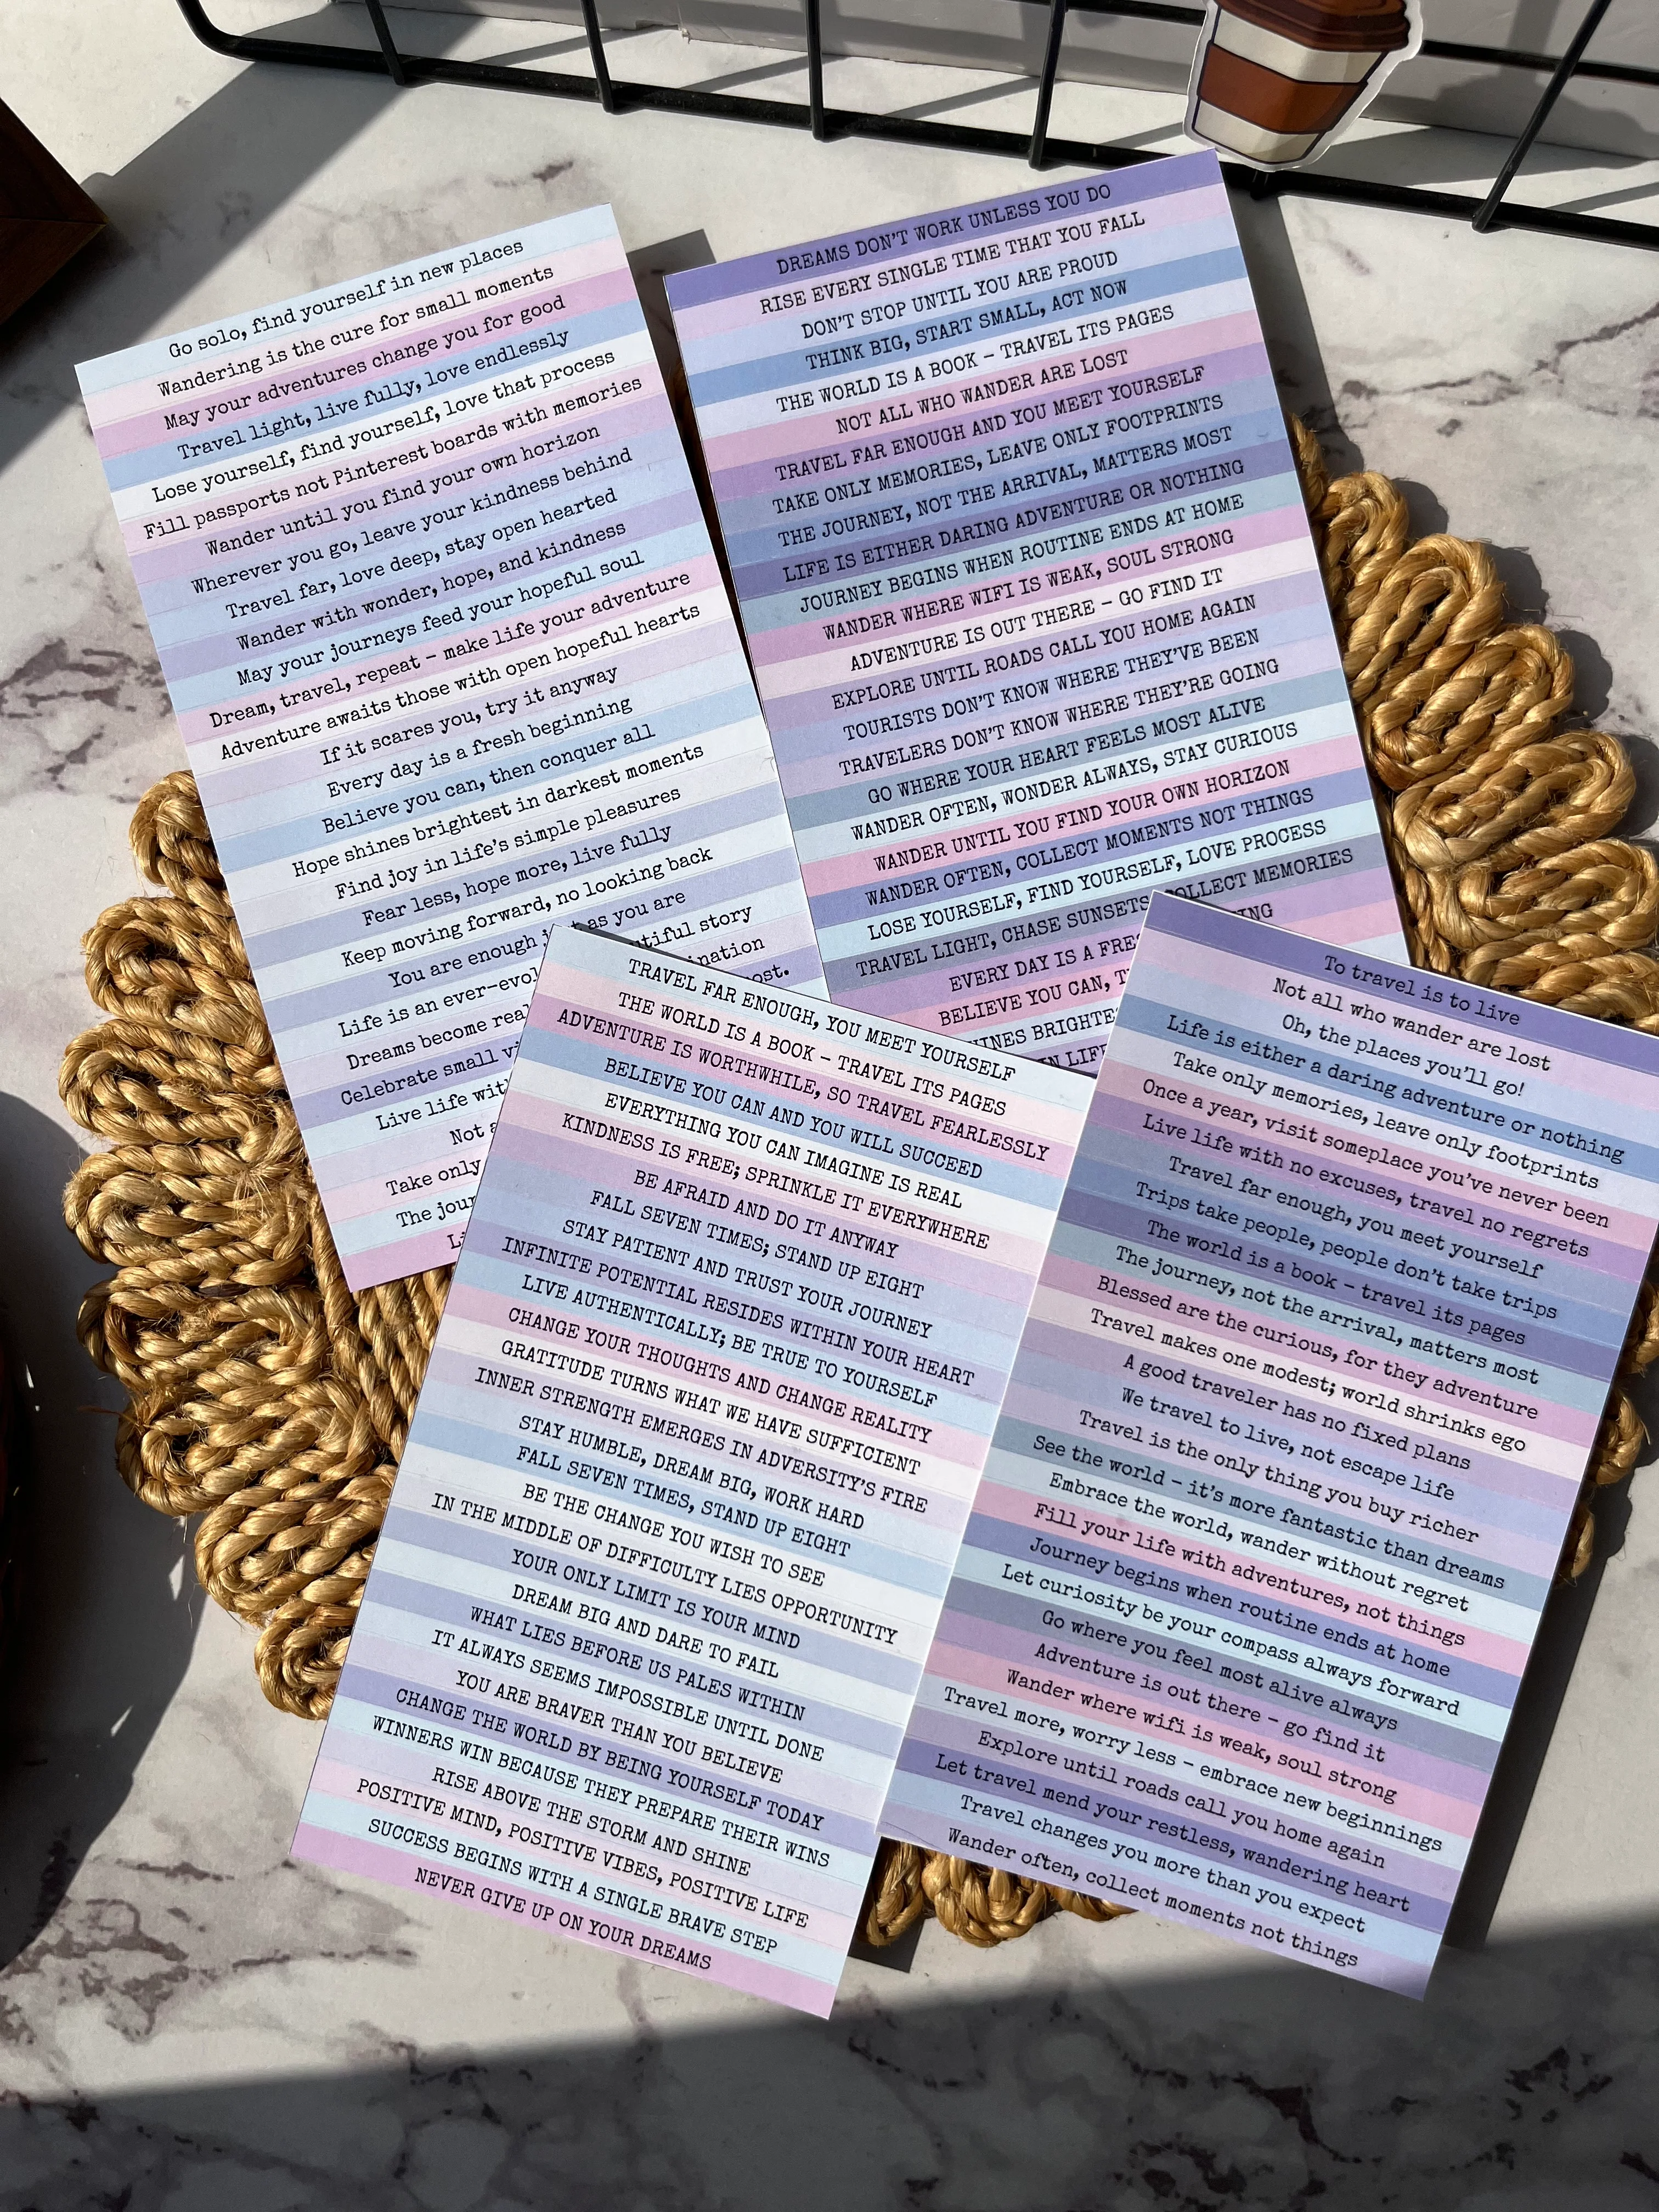 Go solo, find yourself in new places
Wandering is the cure for small moments
May your adventures change you for good
Travel light, live fully, love endlessly
Lose yourself, find yourself, love that process
Fill passports not Pinterest boards with memories
Wander until you find your own horizon
Wherever you go, leave your kindness behind
Travel far, love deep, stay open hearted
Wander with wonder, hope, and kindness
May your journeys feed your hopeful soul
Dream, travel, repeat – make life your adventure
Adventure awaits those with open hopeful hearts
If it scares you, try it anyway
Every day is a fresh beginning
Believe you can, then conquer all
Hope shines brightest in darkest moments
Find joy in life's simple pleasures
Fear less, hope more, live fully
Keep moving forward, no looking back
You are enough as you are
Life is an story
Dreams become
Celebrate small
Live life
Not
Take only
The
DREAMS DON'T WORK UNLESS YOU DO
RISE EVERY SINGLE TIME THAT YOU FALL
DON'T STOP UNTIL YOU ARE PROUD
THINK BIG, START SMALL, ACT NOW
THE WORLD IS A BOOK – TRAVEL ITS PAGES
NOT ALL WHO WANDER ARE LOST
TRAVEL FAR ENOUGH AND YOU MEET YOURSELF
TAKE ONLY MEMORIES, LEAVE ONLY FOOTPRINTS
THE JOURNEY, NOT THE ARRIVAL, MATTERS MOST
LIFE IS EITHER DARING ADVENTURE OR NOTHING
JOURNEY BEGINS WHEN ROUTINE ENDS AT HOME
WANDER WHERE WIFI IS WEAK, SOUL STRONG
ADVENTURE IS OUT THERE – GO FIND IT
EXPLORE UNTIL ROADS CALL YOU HOME AGAIN
TOURISTS DON'T KNOW WHERE THEY'VE BEEN
TRAVELERS DON'T KNOW WHERE THEY'RE GOING
GO WHERE YOUR HEART FEELS MOST ALIVE
WANDER OFTEN, WONDER ALWAYS, STAY CURIOUS
WANDER UNTIL YOU FIND YOUR OWN HORIZON
WANDER OFTEN, COLLECT MOMENTS NOT THINGS
LOSE YOURSELF, FIND YOURSELF, LOVE PROCESS
TRAVEL LIGHT, CHASE SUNSETS, COLLECT MEMORIES
EVERY DAY IS A
BELIEVE YOU CAN,
TRAVEL FAR ENOUGH, YOU MEET YOURSELF
THE WORLD IS A BOOK – TRAVEL ITS PAGES
ADVENTURE IS WORTHWHILE, SO TRAVEL FEARLESSLY
BELIEVE YOU CAN AND YOU WILL SUCCEED
EVERYTHING YOU CAN IMAGINE IS REAL
KINDNESS IS FREE; SPRINKLE IT EVERYWHERE
BE AFRAID AND DO IT ANYWAY
FALL SEVEN TIMES; STAND UP EIGHT
STAY PATIENT AND TRUST YOUR JOURNEY
INFINITE POTENTIAL RESIDES WITHIN YOUR HEART
LIVE AUTHENTICALLY; BE TRUE TO YOURSELF
CHANGE YOUR THOUGHTS AND CHANGE REALITY
GRATITUDE TURNS WHAT WE HAVE SUFFICIENT
INNER STRENGTH EMERGES IN ADVERSITY'S FIRE
STAY HUMBLE, DREAM BIG, WORK HARD
FALL SEVEN TIMES, STAND UP EIGHT
BE THE CHANGE YOU WISH TO SEE
IN THE MIDDLE OF DIFFICULTY LIES OPPORTUNITY
YOUR ONLY LIMIT IS YOUR MIND
DREAM BIG AND DARE TO FAIL
WHAT LIES BEFORE US PALES WITHIN
IT ALWAYS SEEMS IMPOSSIBLE UNTIL DONE
YOU ARE BRAVER THAN YOU BELIEVE
CHANGE THE WORLD BY BEING YOURSELF TODAY
WINNERS WIN BECAUSE THEY PREPARE THEIR WINS
RISE ABOVE THE STORM AND SHINE
POSITIVE MIND, POSITIVE VIBES, POSITIVE LIFE
SUCCESS BEGINS WITH A SINGLE BRAVE STEP
NEVER GIVE UP ON YOUR DREAMS
To travel is to live
Not all who wander are lost
Oh, the places you'll go!
Life is either a daring adventure or nothing
Take only memories, leave only footprints
Once a year, visit someplace you've never been
Live life with no excuses, travel no regrets
Travel far enough, you meet yourself
Trips take people, people don't take trips
The world is a book – travel its pages
The journey, not the arrival, matters most
Blessed are the curious, for they adventure
Travel makes one modest; world shrinks ego
A good traveler has no fixed plans
We travel to live, not escape life
Travel is the only thing you buy richer
See the world – it's more fantastic than dreams
Embrace the world, wander without regret
Fill your life with adventures, not things
Journey begins when routine ends at home
Let curiosity be your compass always forward
Go where you feel most alive always
Adventure is out there – go find it
Wander where wifi is weak, soul strong
Travel more, worry less – embrace new beginnings
Explore until roads call you home again
Let travel mend your restless, wandering heart
Travel changes you more than you expect
Wander often, collect moments not things